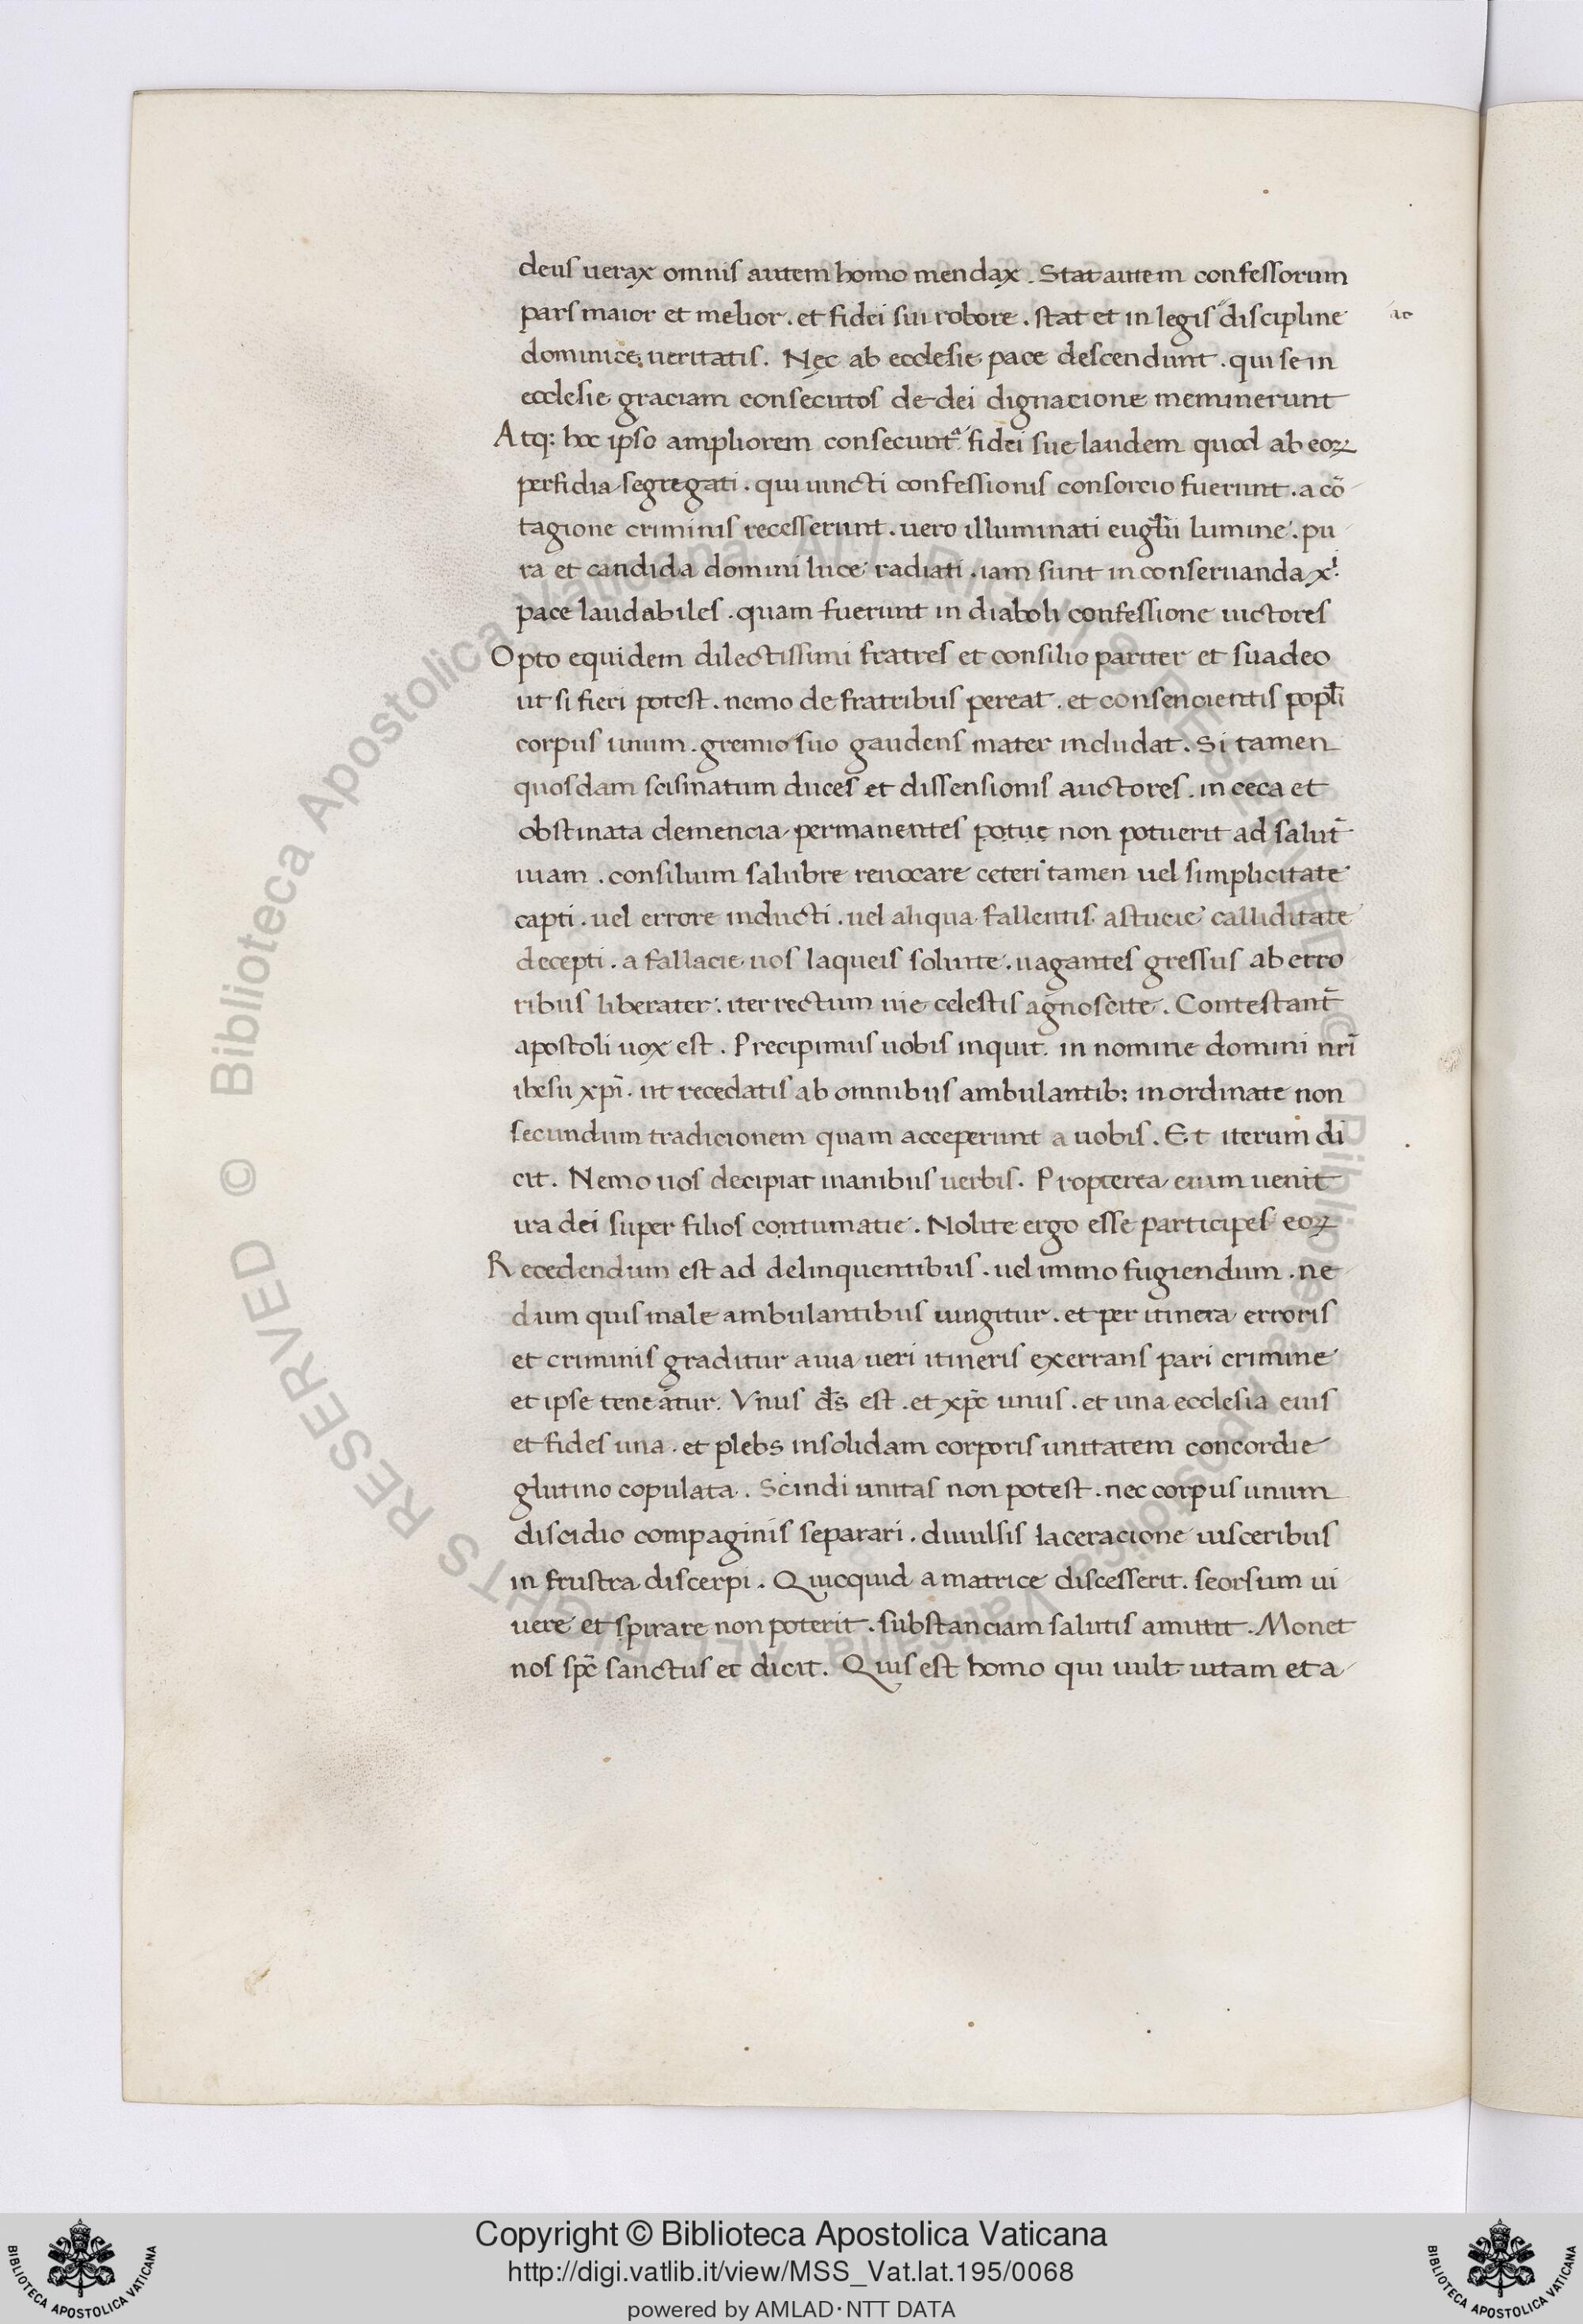 deus uerax omnis autem homo mendax . Stat autem confessorum
pars maior et melior . et fidei sui robore . stat et in legis discipline
ac
dominicę ueritatis . Nec ab ecclesie pace descendunt . qui se in
ecclesie graciam consecutos de dei dignacione meminerunt
Atq: hoc ipso ampliorem consecunt̃ᵃ fidei sue laudem quod ab eoꝝ
perfidia segregati . qui uincti confessionis consorcio fuerunt . a cõ
tagione criminis recesserunt . uero illuminati eug̃lii lumine . pu
ra et candida domini luce radiati . iam sunt in conseruanda xⁱ.
pace laudabiles . quam fuerunt in diaboli confessione uictores
Opto equidem dilectissimi fratres et consilio pariter et suadeo
ut si fieri potest . nemo de fratribus pereat . et consencientis popłi
corpus unum . gremio suo gaudens mater includat . Si tamen
quosdam scismatum duces et dissensionis auctores . in ceca et
obstinata demencia permanentes potuẹ non potuerit ad salut̃
uiam . consilium salubre reuocare ceteri tamen uel simplicitate
capti . uel errore inducti . uel aliqua fallentis astucie calliditate
decepti . a fallacie uos laqueis soluite . uagantes gressus ab erro
ribus liberater . iter rectum uie celestis agnoscite . Contestant̃
apostoli uox est . Precipimus uobis inquit . in nomine domini nr̃i
ihesu xpi̅ . ut recedatis ab omnibus ambulantib: inordinate non
secundum tradicionem quam acceperunt a uobis . Et iterum di
cit . Nemo uos decipiat inanibus uerbis . Propterea enim uenit
ira dei super filios contumatie . Nolite ergo esse participes eoꝝ
Recedendum est ad delinquentibus . uel immo fugiendum . ne
dum quis male ambulantibus iungitur . et per itinera erroris
et criminis graditur a uia ueri itineris exerrans pari crimine
et ipse teneatur . Vnus d̅s est . et xp̅c unus . et una ecclesia eius
et fides una . et plebs in solidam corporis unitatem concordie
glutino copulata . Scindi unitas non potest . nec corpus unum
discidio compaginis separari . diuulsis laceracione uisceribus
in frustra discerpi . Quicquid a matrice discesserit . seorsum ui
uere et spirare non poterit . substanciam salutis amittit . Monet
nos sp̅c sanctus et dicit . Quis est homo qui uult uitam et a
© Biblioteca Apostolica Vaticana ALL RIGHTS RESERVED
© Biblioteca Apostolica Vaticana ALL RIGHTS RESERVED
Copyright © Biblioteca Apostolica Vaticana
http://digi.vatlib.it/view/MSS_Vat.lat.195/0068
powered by AMLAD·NTT DATA
BIBLIOTECA APOSTOLICA VATICANA
BIBLIOTECA APOSTOLICA VATICANA